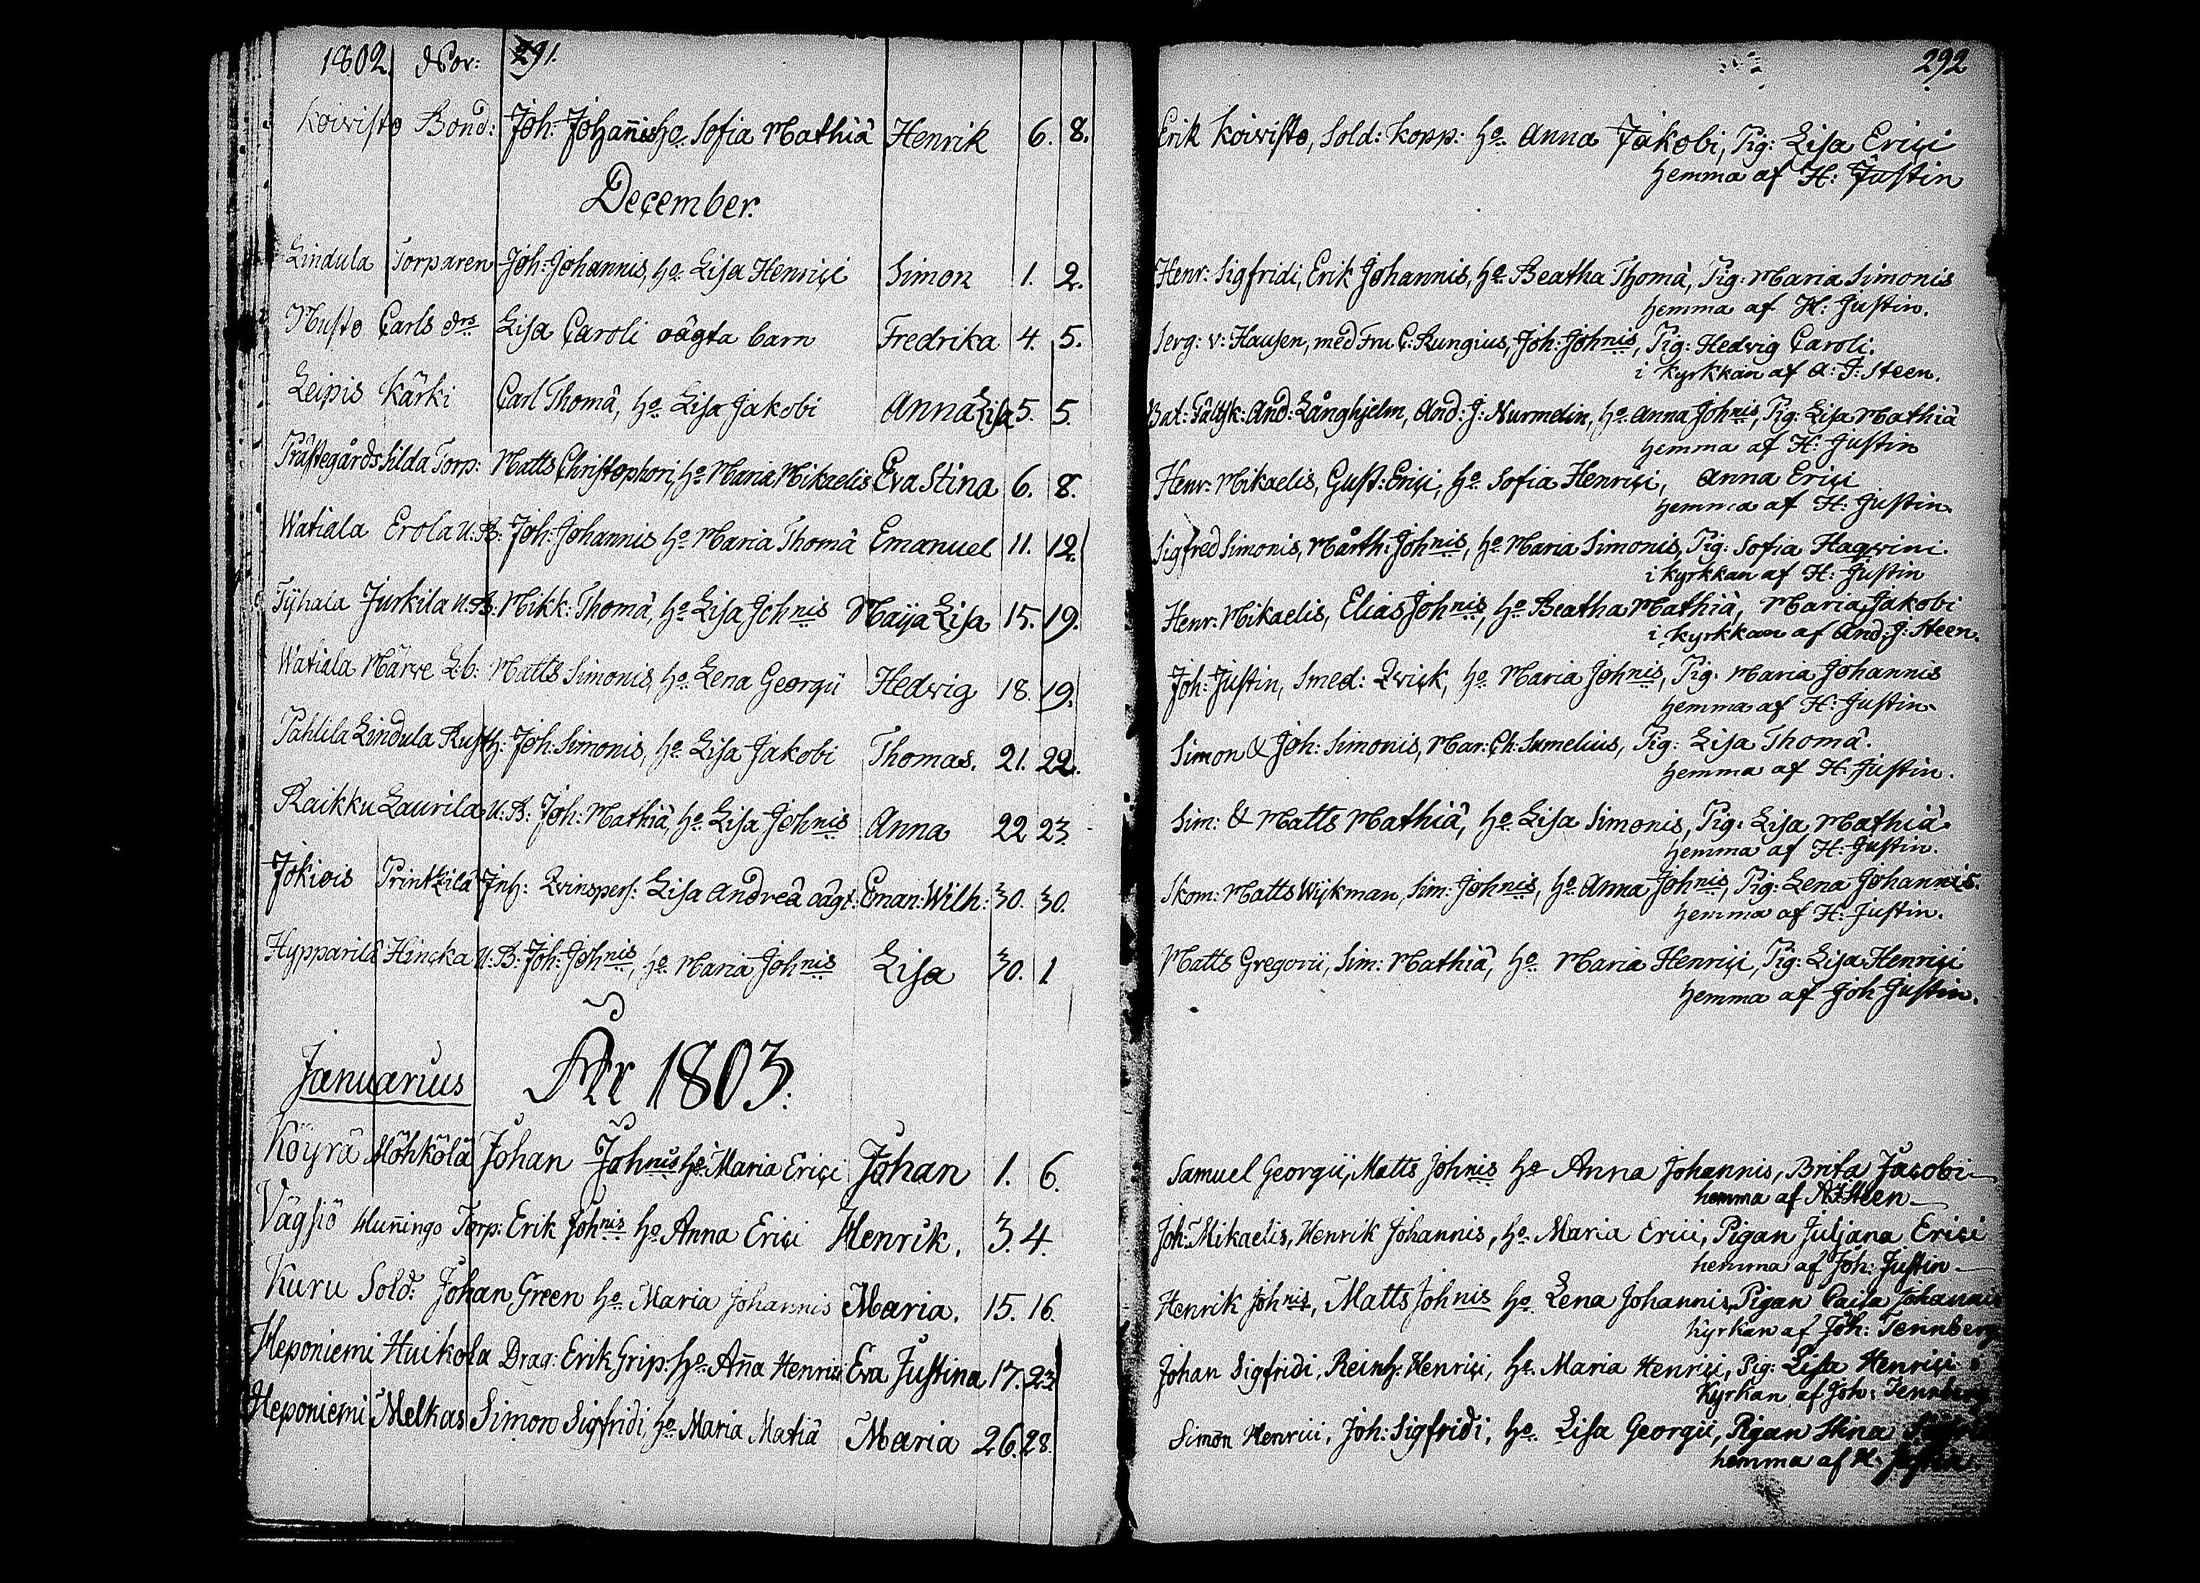 1802. Nov: 291.
Koivisto Bond: Joh: Johannis ho Sofia Mathiä Henrik 6. 8.
December.
Lindula Torparen Joh: Johannis, ho Lisa Henrici Simon 1. 2.
Musto Carls drs Lisa Caroli oägta barn Fredrika 4. 5.
Leipis Kärki Carl Thomä, ho Lisa Jakobi Anna Lisa 5. 5.
Prästegårds Torp: Matts Christophori, ho Maria Mikaelis Eva Stina 6. 8.
Watiala Erola U:B: Joh: Johannis ho Maria Thomä Emanuel 11. 12.
Tyhala Jurkila U:B: Mikk: Thomä, ho Lisa Johnis Maija Lisa 15. 19.
Watiala Märve L:b: Matts Simonis, ho Lena Georgii Hedvig 18. 19.
Pahlila Lindula Rusth: Joh: Simonis, ho Lisa Jakobi Thomas. 21. 22.
Raikku Laurila U:B: Joh: Mathiä, ho Lisa Johnis Anna 22 23
Jokiois Printkilä Inh: Qvinspers: Lisa Andreä oägt: Eman: Wilh: 30. 30.
Hypparilä Hincka U:B: Joh: Johnis, ho Maria Johnis Lisa 30. 1
Januarius År 1803.
Köyrä Möhkölä Johan Johnis ho Maria Erici Johan 1. 6.
Vägsjö Huñingo Torp: Erik Johnis ho Anna Erici Henrik. 3. 4.
Kuru Sold: Johan Green ho Maria Johannis Maria. 15. 16.
Heponiemi Huikola Drag: Erik Grip: ho Aña Henrici Eva Justina 17. 23
Heponiemi Melkas Simon Sigfridi, ho Maria Matiä Maria 26. 28
292
Erik Koivisto, Sold: Kopp: ho Anna Jakobi, Pig: Lisa Erici
hemma af H: Justin
Henr: Sigfridi, Erik Johannis, ho Beatha Thomä, Pig: Maria Simonis
hemma af H: Justin.
Serg: v: Hausen, med Fru C: Rungius, Joh: Johnis, Pig: Hedvig Caroli.
i kyrkkan af A: J: Steen.
And: Långhjelm, And: J: Nurmelin, ho Anna Johnis, Pig: Lisa Mathiä
hemma af H: Justin
Henr: Mikaelis, Gust: Erici, ho Sofia Henrici, Anna Erici
hemma af H: Justin.
Sigfred Simonis, Mårth: Johnis, ho Maria Simonis, Pig: Sofia Haqvini.
i kyrkkan af H: Justin
Henr: Mikaelis, Elias Johnis, ho Beatha Mathiä, Maria Jakobi
i kyrkkan af And: J: Steen.
Joh: Justin, Smed: Qvick, ho Maria Johnis, Pig: Maria Johannis
hemma af H: Justin.
Simon & Joh: Simonis, Mar: Ch: Sumelius, Pig: Lisa Thomä.
hemma af H: Justin.
Sim: & Matts Mathiä, ho Lisa Simonis, Pig: Lisa Mathiä
hemma af H: Justin.
Skom: Matts Wijkman, Sim: Johnis, ho Anna Johnis, Pig: Lena Johannis.
hemma af H: Justin.
Matts Gregorii, Sim: Mathiä, ho Maria Henrici, Pig: Lisa Henrici
hemma af Joh Justin.
Samuel Georgii, Matts Johnis ho Anna Johannis, Brita Jacobi
hemma af A:J:Steen
Joh: Mikaelis, Henrik Johannis, ho Maria Erici, Pigan Juljana Erici
hemma af Joh: Justin
Henrik Johnis, Matts Johnis ho Lena Johannis, Pigan Caisa Johannis
Kyrkan af Joh: Tennberg
Johan Sigfridi, Reinh: Henrici, ho Maria Henrici, Pig: Lisa Henrici
Kyrkan af Joh: Tennberg
Simon Henrici, Joh: Sigfridi, ho Lisa Georgii, Pigan Stina
hemma af H: Justin.